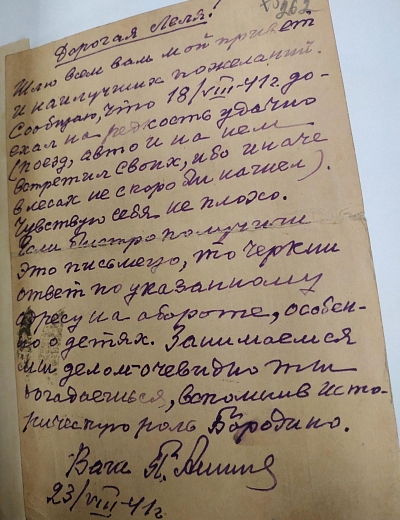 262
Дорогая Леля!
Шлю всем вам мой привет
и наилучших пожеланий.
Сообщаю, что 18/VIII-41г. до-
ехал на редкость удачно
(поезд, авто и на нем
встретил своих, ибо иначе
в лесах не скоро бы нашел).
Чувствую себя не плохо.
Если быстро получили
это письмецо, то черкни
ответ по указанному
адресу на обороте, особен-
но о детях. Занимаемся
мы делом очевидно ты
догадаешься, вспомнив исто-
рическую роль Бородино.
Ваш П.
23/VIII-41г